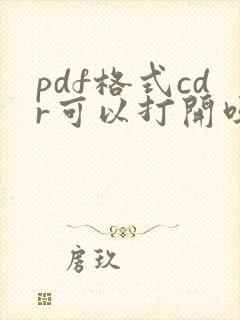 pdf格式cd
r可以打開
房玖